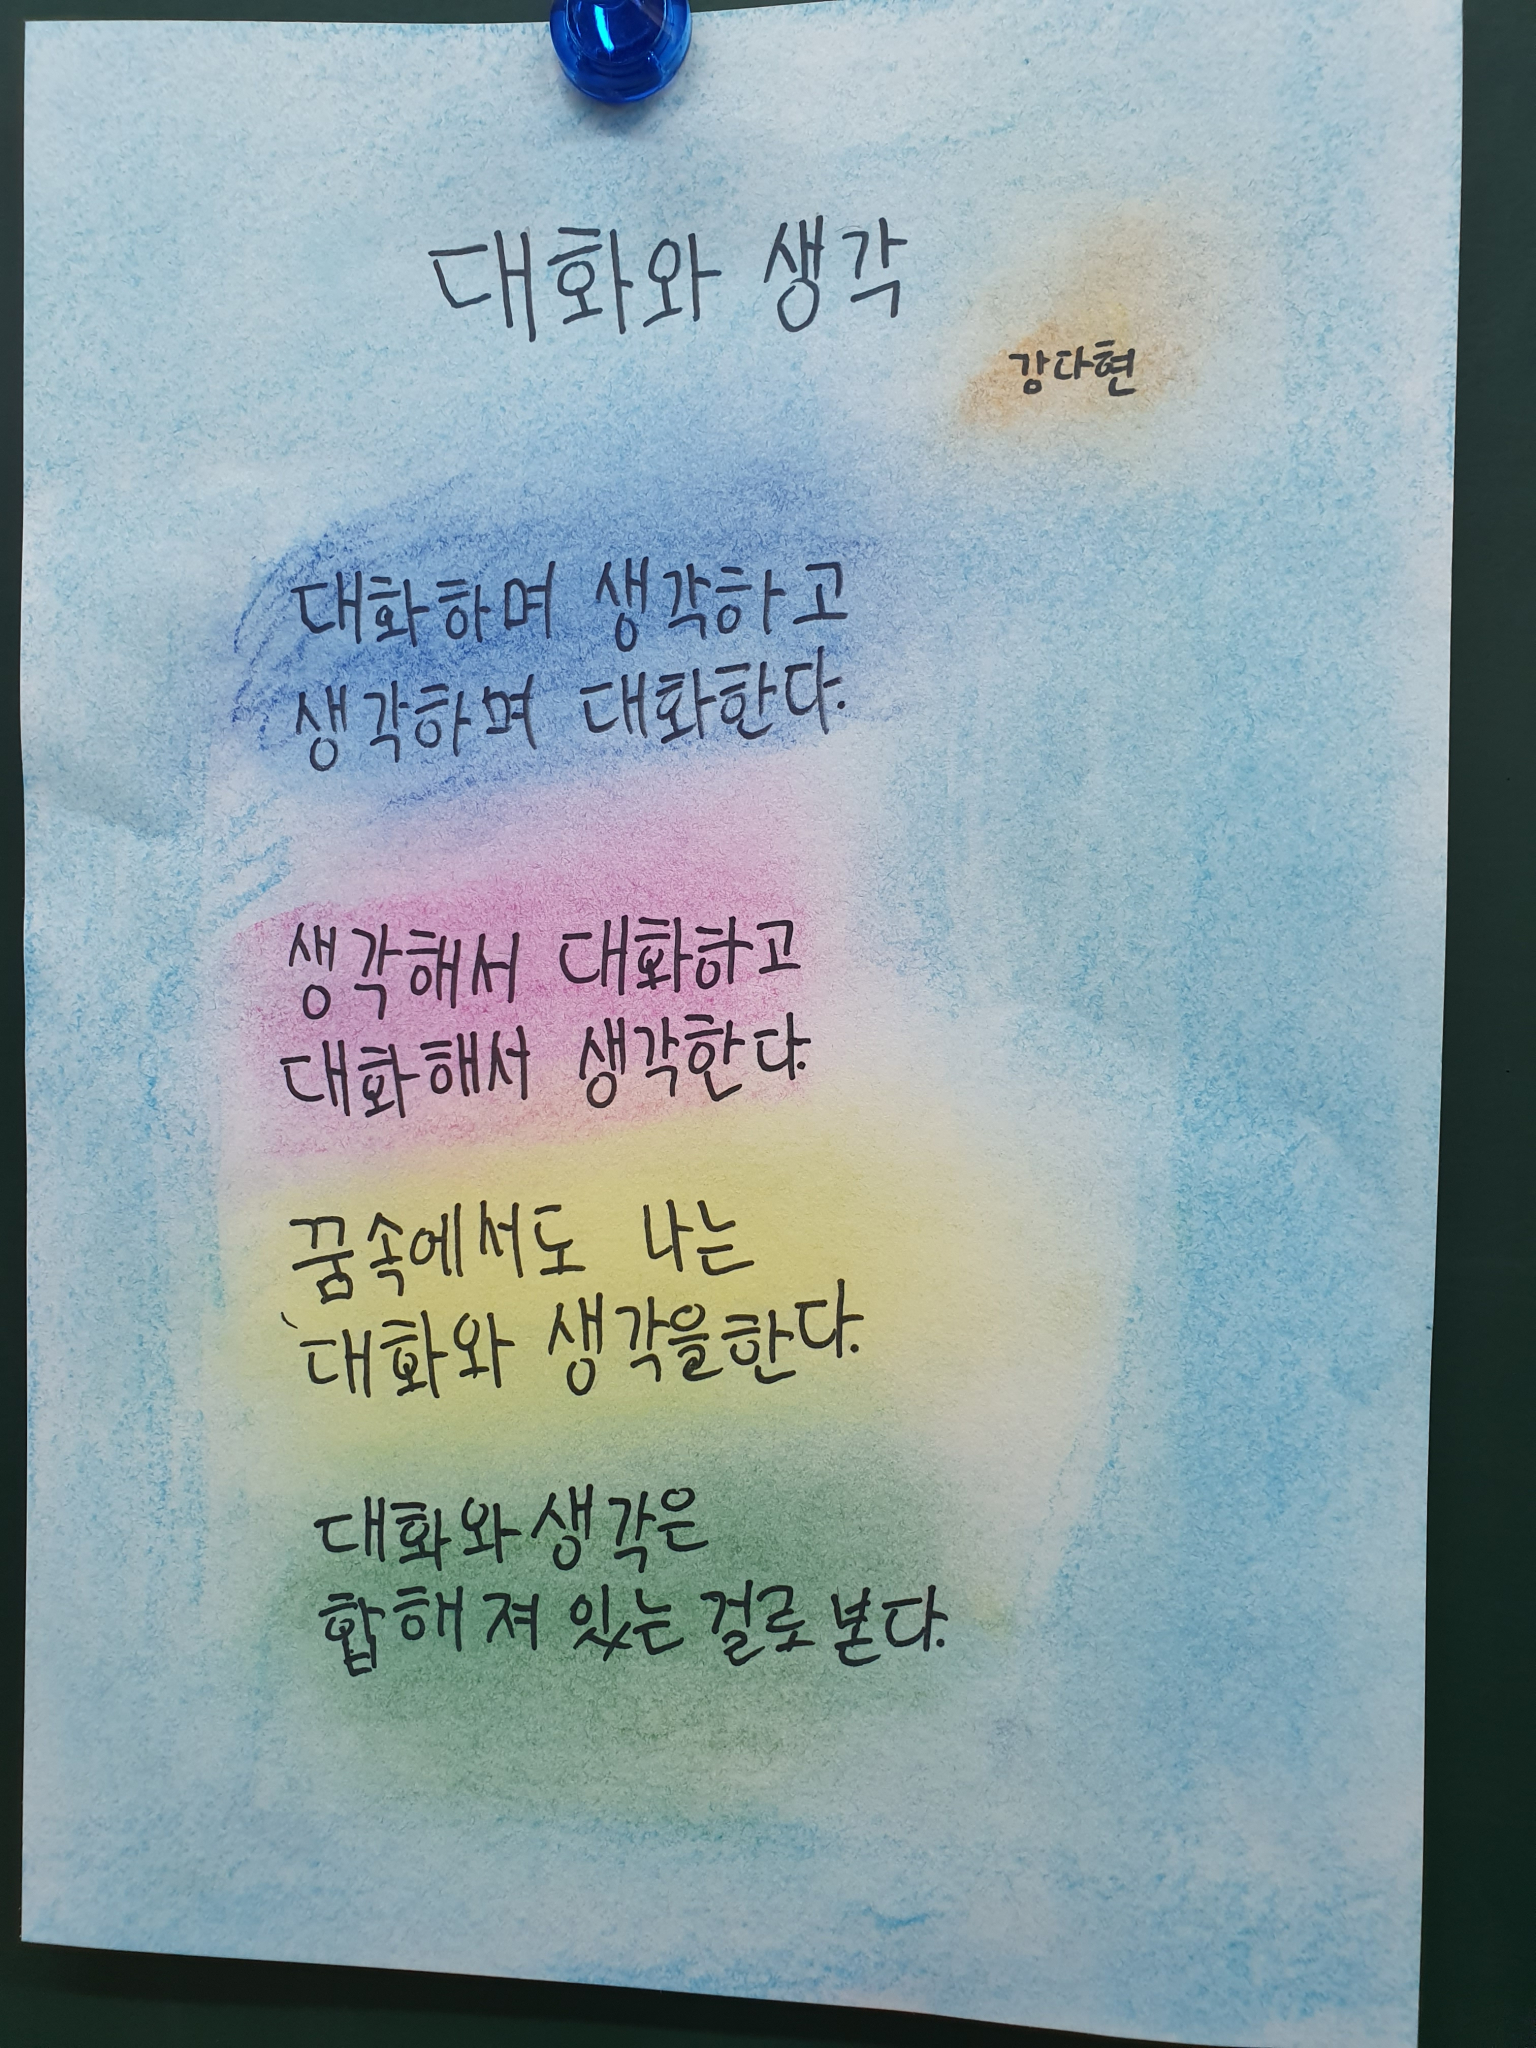 대화와 생각
강다현
대화하며 생각하고
생각하며 대화한다.
생각해서 대화하고
대화해서 생각한다.
꿈속에서도 나는
대화와 생각을한다.
대화와 생각은
합해져 있는 걸로 본다.